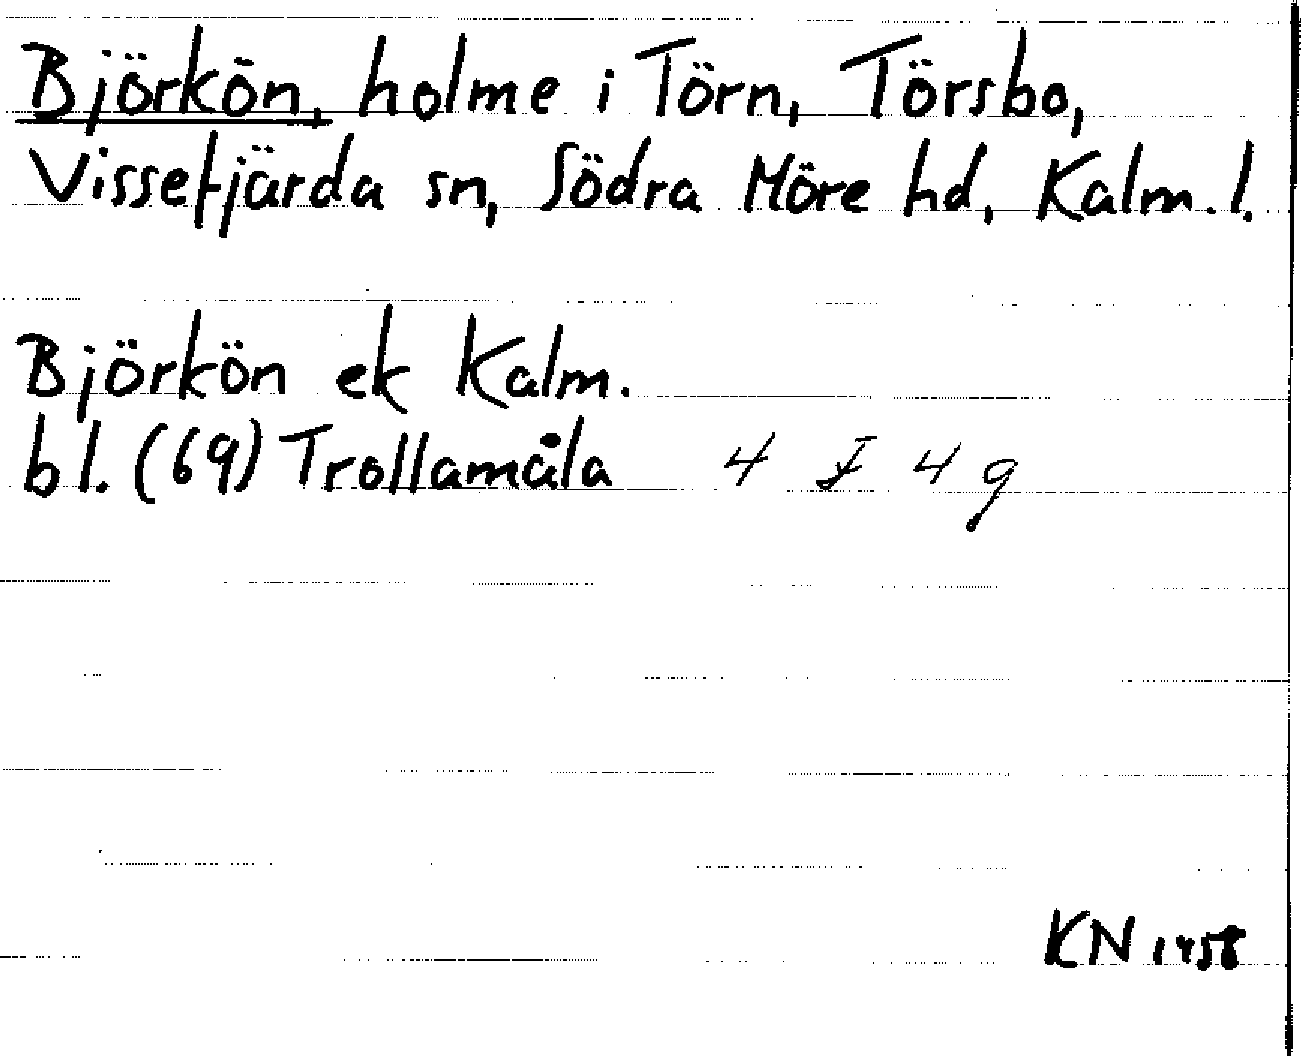 Björkön, holme i Törn, Törsbo,
Vissefjärda sn, Södra Möre hd, Kalm. l.
Björkön ek Kalm.
bl. (69) Trollamåla 4 F 4 g
KN 1958